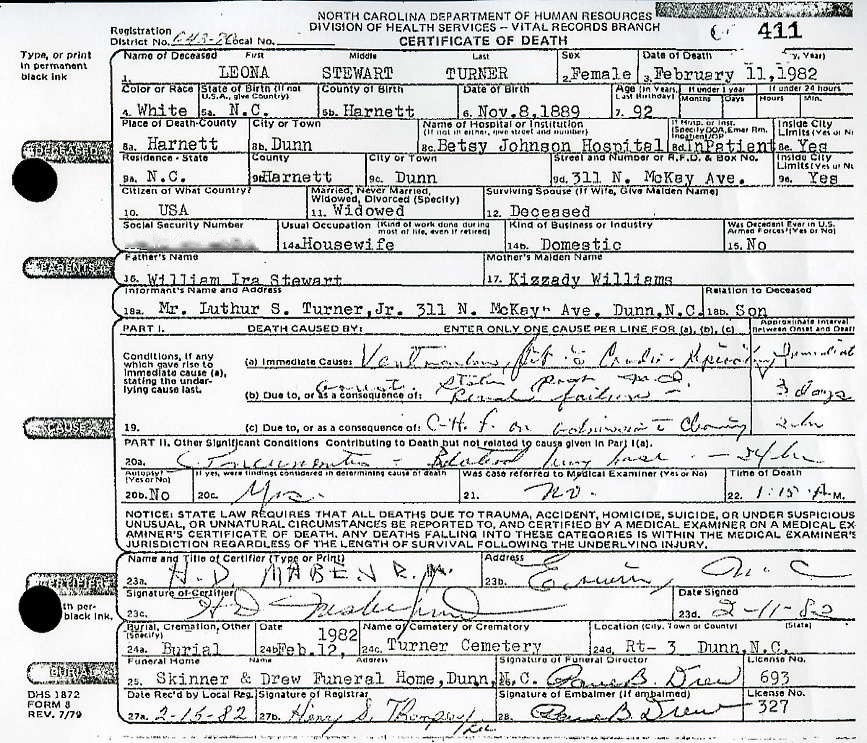 NORTH CAROLINA DEPARTMENT OF HUMAN RESOURCES
DIVISION OF HEALTH SERVICES -- VITAL RECORDS BRANCH
CERTIFICATE OF DEATH
411
Registration
District No. Local No.
Type, or print
in permanent
black ink
Name of Deceased First Middle Last Sex Date of Death y, Year)
1. LEONA STEWART TURNER 2. Female 3. February 11, 1982
Color or Race State of Birth (If not U.S.A., give Country) County of Birth Date of Birth Age (In Years, Last Birthday) If under 1 year If under 24 hours
Months Days Hours Min.
4. White 5a. N.C. 5b. Harnett 6. Nov. 8, 1889 7. 92
Place of Death-County City or Town Name of Hospital or Institution (If not in either, give street and number) If Hosp. or Inst. (Specify DOA, Emer Rm, Inpatient/OP Inside City Limits (Yes or No
8a. Harnett 8b. Dunn 8c. Betsy Johnson Hospital 8d. InPatient 8e. Yes
Residence - State County City or Town Street and Number or R.F.D. & Box No. Inside City Limits (Yes or No
9a. N.C. 9b. Harnett 9c. Dunn 9d. 311 N. McKay Ave. 9e. Yes
Citizen of What Country? Married, Never Married, Widowed, Divorced (Specify) Surviving Spouse (If Wife, Give Maiden Name)
10. USA 11. Widowed 12. Deceased
Social Security Number Usual Occupation (Kind of work done during most of life, even if retired) Kind of Business or Industry Was Decedent Ever in U.S. Armed Forces? (Yes or No)
14a. Housewife 14b. Domestic 15. No
PARENTS
Father's Name Mother's Maiden Name
16. William Ira Stewart 17. Kizzady Williams
Informant's Name and Address Relation to Deceased
18a. Mr. Luthur S. Turner, Jr. 311 N. McKay Ave. Dunn, N.C. 18b. Son
PART I. DEATH CAUSED BY: ENTER ONLY ONE CAUSE PER LINE FOR (a), (b), (c) Approximate Interval Between Onset and Death
Conditions, if any
which gave rise to
immediate cause (a),
stating the under-
lying cause last.
(a) Immediate Cause:
(b) Due to, or as a consequence of: Renal failure 3 days
CAUSE
19. (c) Due to, or as a consequence of: C-H.f. on
PART II. Other Significant Conditions Contributing to Death but not related to cause given in Part I(a).
20a.
Autopsy? (Yes or No) If yes, were findings considered in determining cause of death Was case referred to Medical Examiner (Yes or No) Time of Death
20b. No 20c. 21. No. 22. 1:15 A.M.
NOTICE: STATE LAW REQUIRES THAT ALL DEATHS DUE TO TRAUMA, ACCIDENT, HOMICIDE, SUICIDE, OR UNDER SUSPICIOUS
UNUSUAL, OR UNNATURAL CIRCUMSTANCES BE REPORTED TO, AND CERTIFIED BY A MEDICAL EXAMINER ON A MEDICAL EX
AMINER'S CERTIFICATE OF DEATH. ANY DEATHS FALLING INTO THESE CATEGORIES IS WITHIN THE MEDICAL EXAMINER'S
JURISDICTION REGARDLESS OF THE LENGTH OF SURVIVAL FOLLOWING THE UNDERLYING INJURY.
CERTIFIER
Name and Title of Certifier (Type or Print) Address
23a. H.D. 23b. Erwin, N C
Signature of Certifier Date Signed
23c. 23d. 2-11-82
th per-
black ink.
Burial, Cremation, Other (Specify) Date Name of Cemetery or Crematory Location (City, Town or County) (State)
24a. Burial 24b. Feb. 12, 1982 24c. Turner Cemetery 24d. Rt- 3 Dunn, N.C.
Funeral Home Name Address Signature of Funeral Director License No.
25. Skinner & Drew Funeral Home, Dunn, N.C. 26. B. Drew 693
BURIAL
DHS 1872
FORM 8
REV. 7/79
Date Rec'd by Local Reg. Signature of Registrar Signature of Embalmer (If embalmed) License No.
27a. 2-15-82 27b. Henry S. 28. B. Drew 327